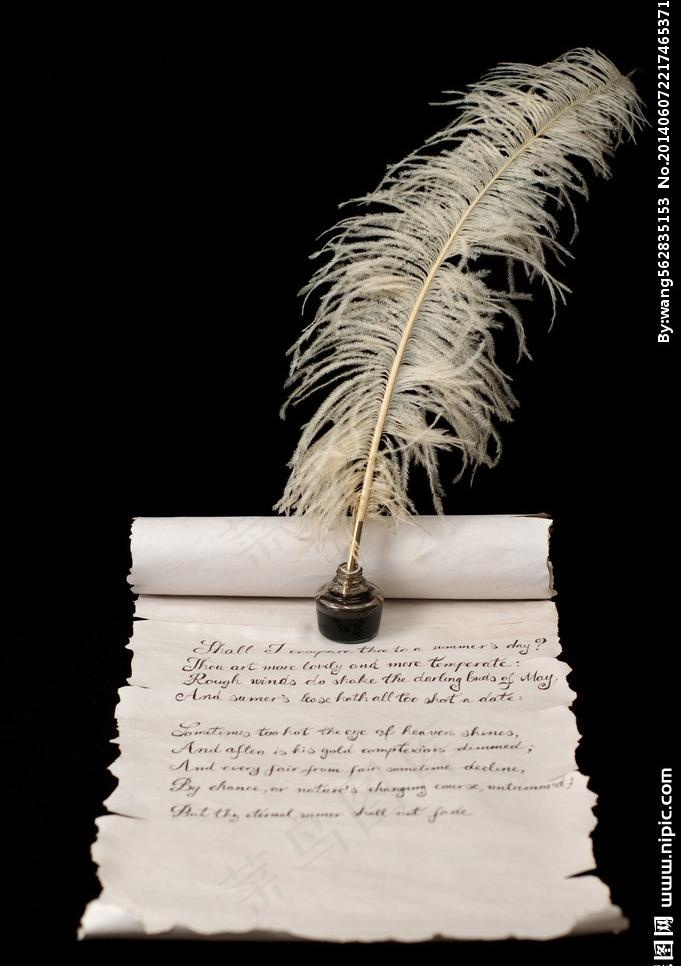 Shall I compare thee to a summer's day?
Thou art more lovely and more temperate:
Rough winds do shake the darling buds of May,
And sumer's lease hath all too shot a date:
Sometimes too hot the eye of heaven shines,
And aften is his gold complexions dimmed;
And every fair from fair sometime decline,
By chance, or nature's changing course, untrimm'd;
But thy eternal sumer shall not fade
By:wang562835153 No.20140607221746537１
图网 www.nipic.com